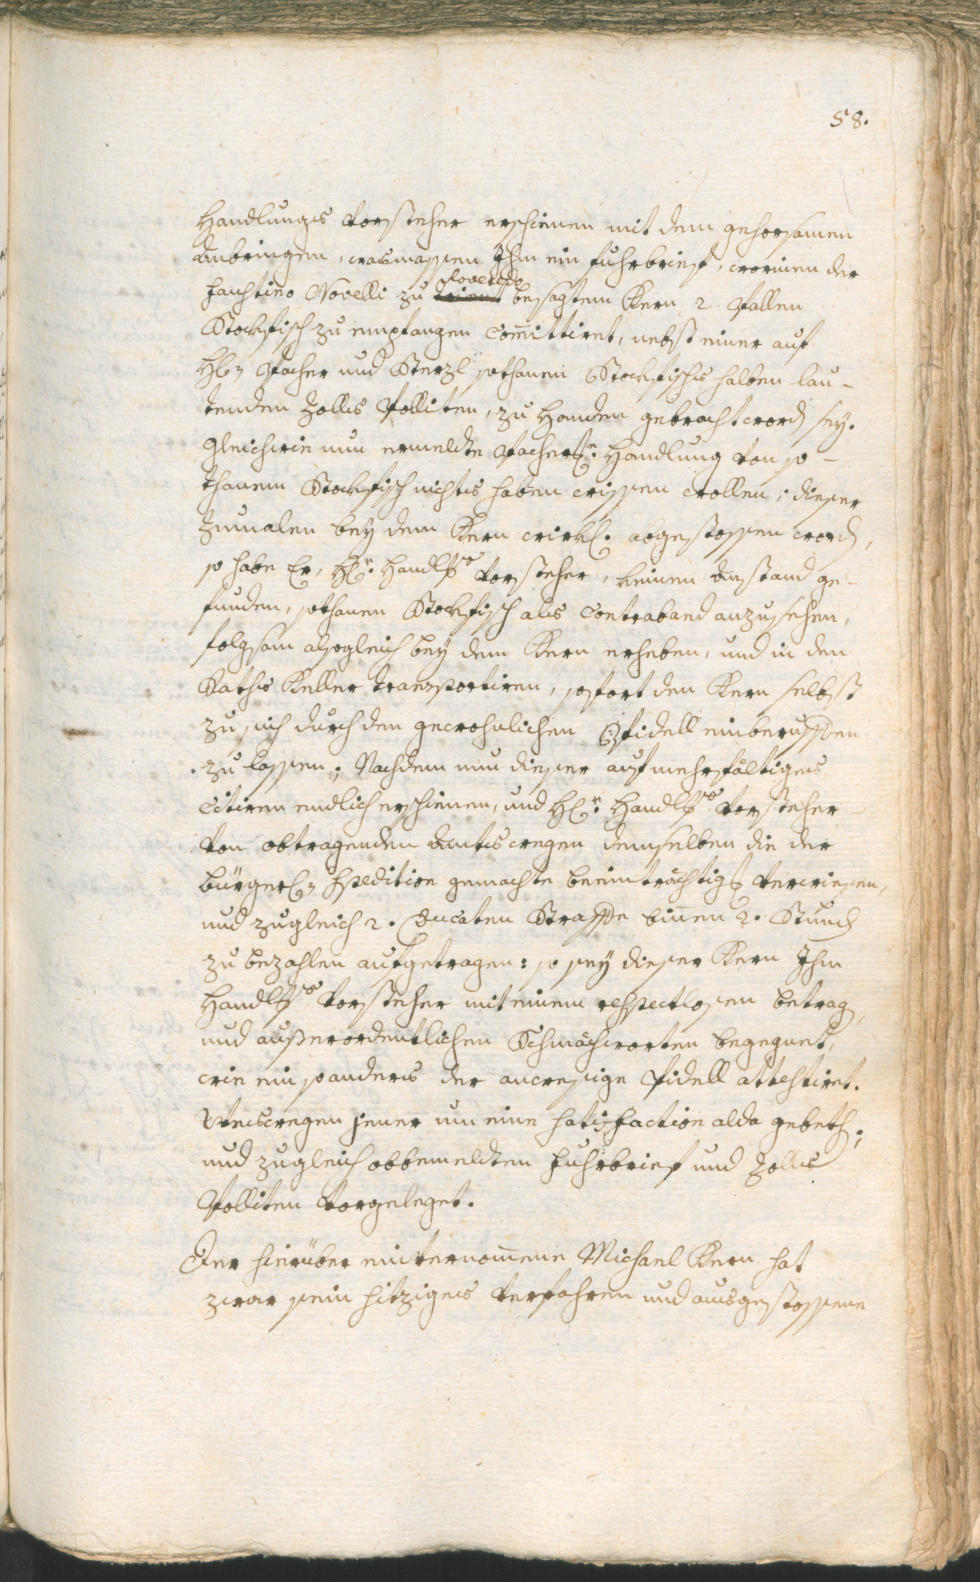 58.
Handlungs vorsteher erschienen mit dem gehorsamen
Anbringen, wasmassen Ihm ein fuhrbrief, worinen der
Faustino Novelli zu Roveredo besagtem Kern 2. Pallen
Stockfisch zu empfangen Com̄ittiret, nebst einer auf
Hl. Pacher und Sterzl sothanen Stockfischs halben lau-
tenden Zolls Polliten, zu Handen gebracht word sey.
Gleichwie nun ermeldte Pacherl. Handlung von so-
thanem Stockfisch nichts haben wissen wollen; dieser
Zumalen bey dem Kern wirkl. abgestossen word,
so habe Er, H. Handlgs vorsteher, keinen Anstand ge-
funden, sothanen Stockfisch als Contraband anzusehen,
folgsam alsogleich bey dem Kern erheben, und in den
Raths Keller transportiren, sofort den Kern selbst
zu sich durch den gewohnlichen Pfidell einberuffen
zu lassen; Nachdem nun dieser auf mehrfältiges
Citiren endlich erschienen, und H. Handlgs vorsteher
von obtragenden Amts wegen demselben die der
bürgerl. Spedition gemachte beeinträchtig. verwiesen,
und zugleich 2. Ducaten Straffe binnen 2. Stund
zu bezahlen aufgetragen: so sey dieser Kern Ihm
Handlgs vorsteher mit einem respectlosen betrag,
und außerordentlichen Schmächworten begegnet,
wie ein so anders der anwesige Fidell attestiret.
Weswegen jener um eine satisfaction alda gebeth,
und zugleich obbemeldten fuhrbrief und Zolls
Polliten vorgeleget.
Der hierüber einvernom̄ene Michael Kern hat
zwar sein hitziges verfahren und ausgestossene